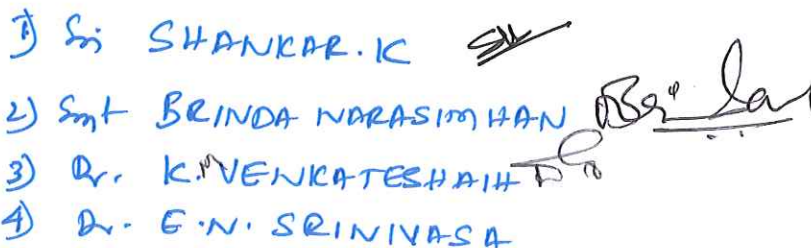 1) Sri SHANKAR. K
2) Smt BRINDA NARASIMHAN
3) Dr. K. VENKATESHAIH
4) Dr. G. N. SRINIVASA